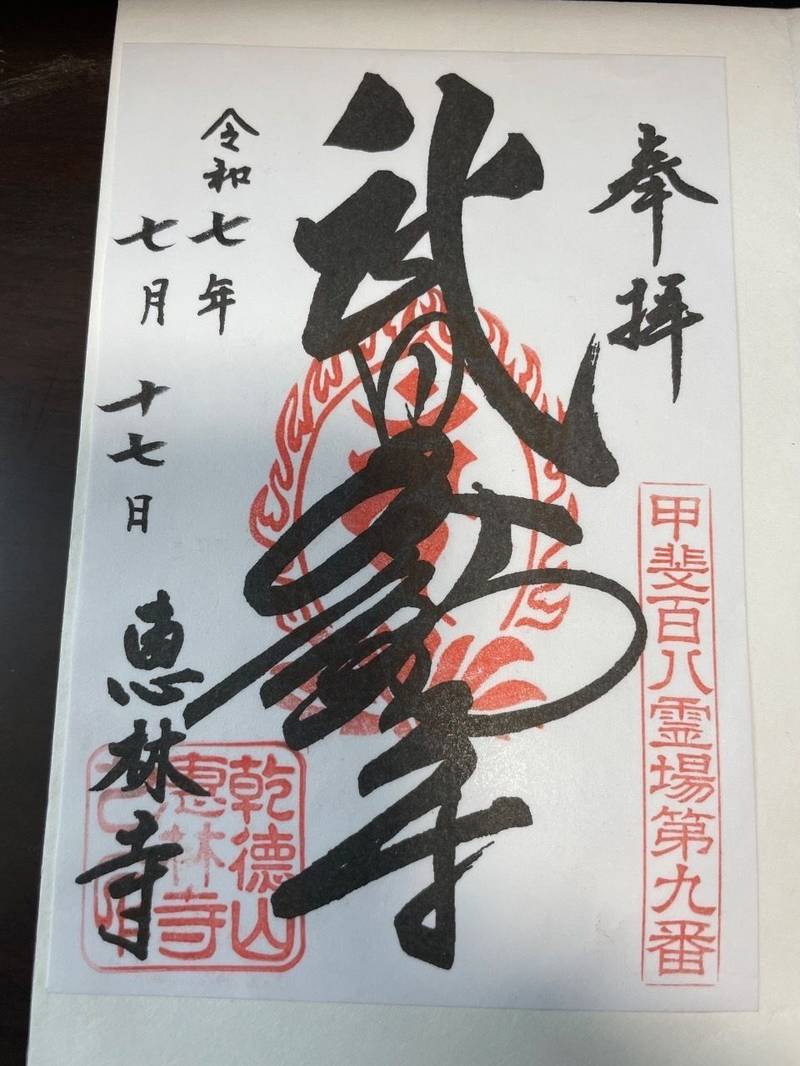 奉拝
甲斐百八霊場第九番
武田不動尊
令和七年
七月十七日
恵林寺
乾徳山
恵林寺